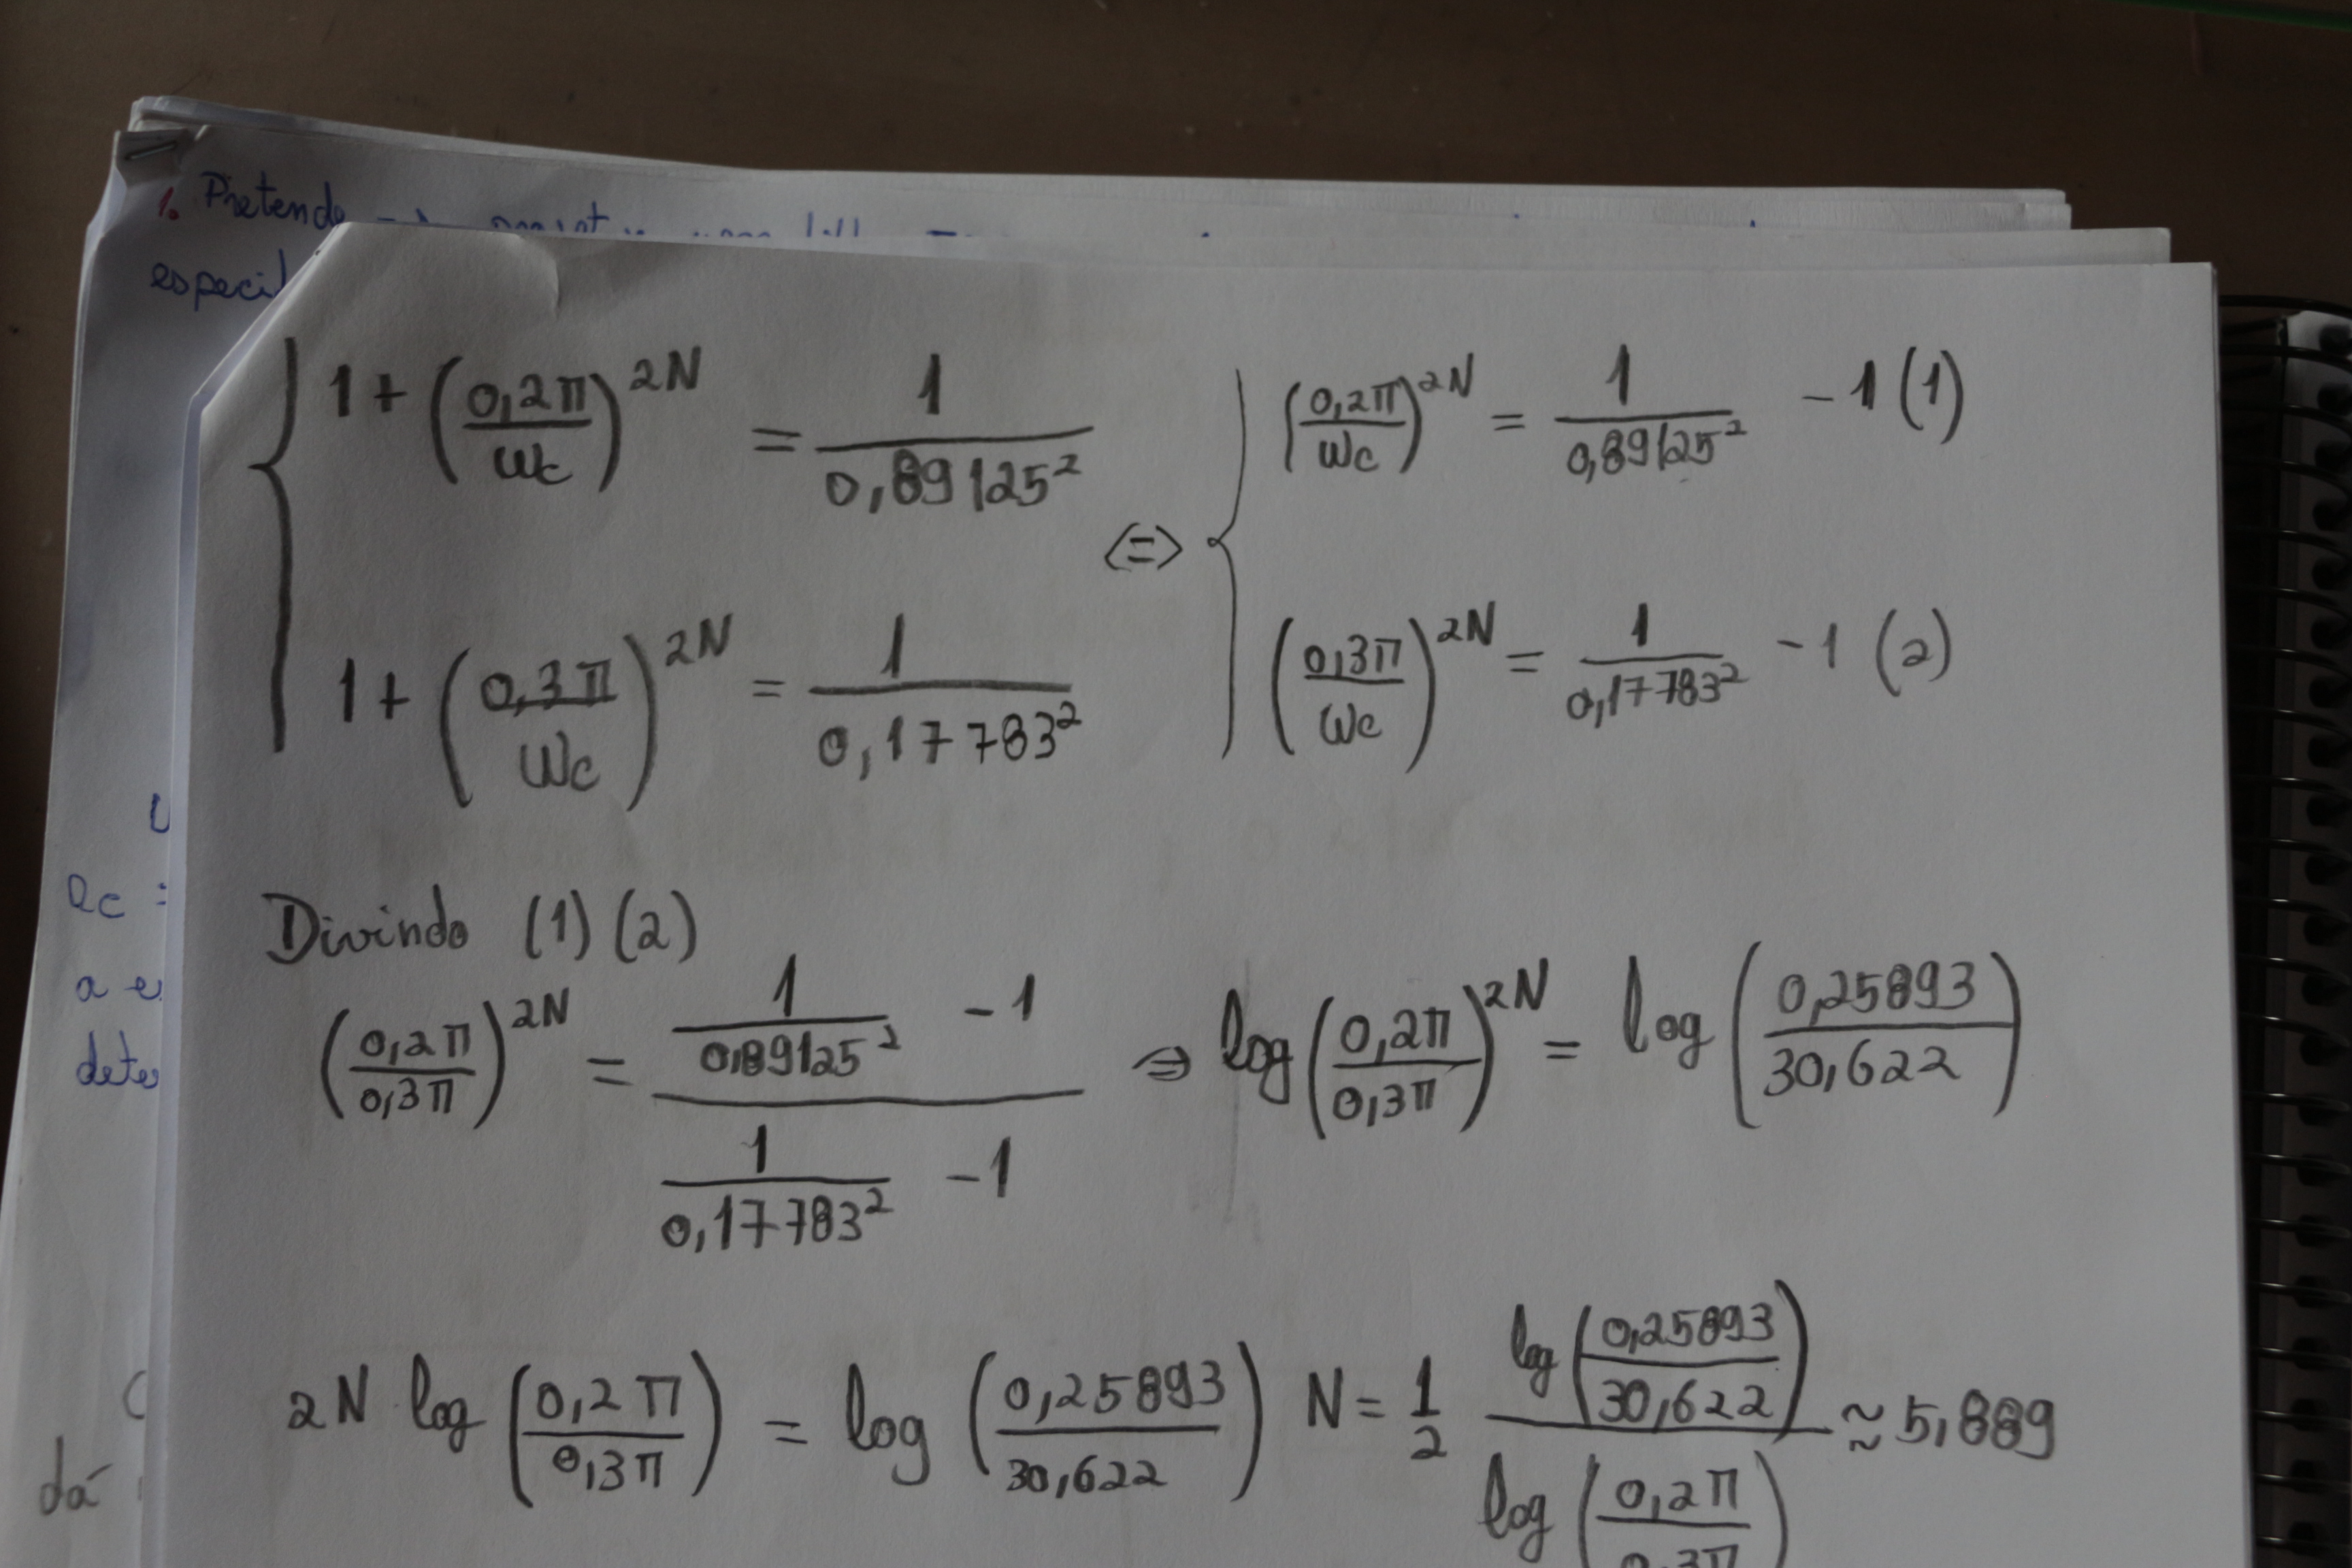 1. Pretende
1 + (0,2π/ωc)^2N = 1/0,89125² ⇔ (0,2π/ωc)^2N = 1/0,89125² - 1 (1)
1 + (0,3π/ωc)^2N = 1/0,17783² (0,3π/ωc)^2N = 1/0,17783² - 1 (2)
Divindo (1) (2)
(0,2π/0,3π)^2N = (1/0,89125² - 1)/(1/0,17783² - 1) ⇒ log(0,2π/0,3π)^2N = log(0,25893/30,622)
2N log(0,2π/0,3π) = log(0,25893/30,622) N = 1/2 log(0,25893/30,622)/log(0,2π/0,3π) ≈ 5,889
dá